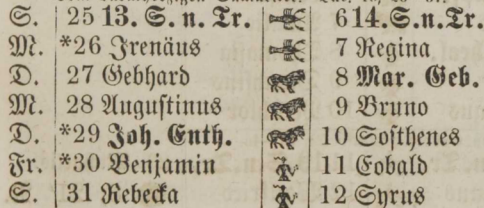 S. 25 13. S. n. Tr. 6 14. S. n. Tr.
M. *26 Irenäus 7 Regina
D. 27 Gebhard 8 Mar. Geb.
M. 28 Augustinus 9 Bruno
D. *29 Joh. Enth. 10 Sosthenes
Fr. *30 Benjamin 11 Eobald
S. 31 Rebecka 12 Syrus